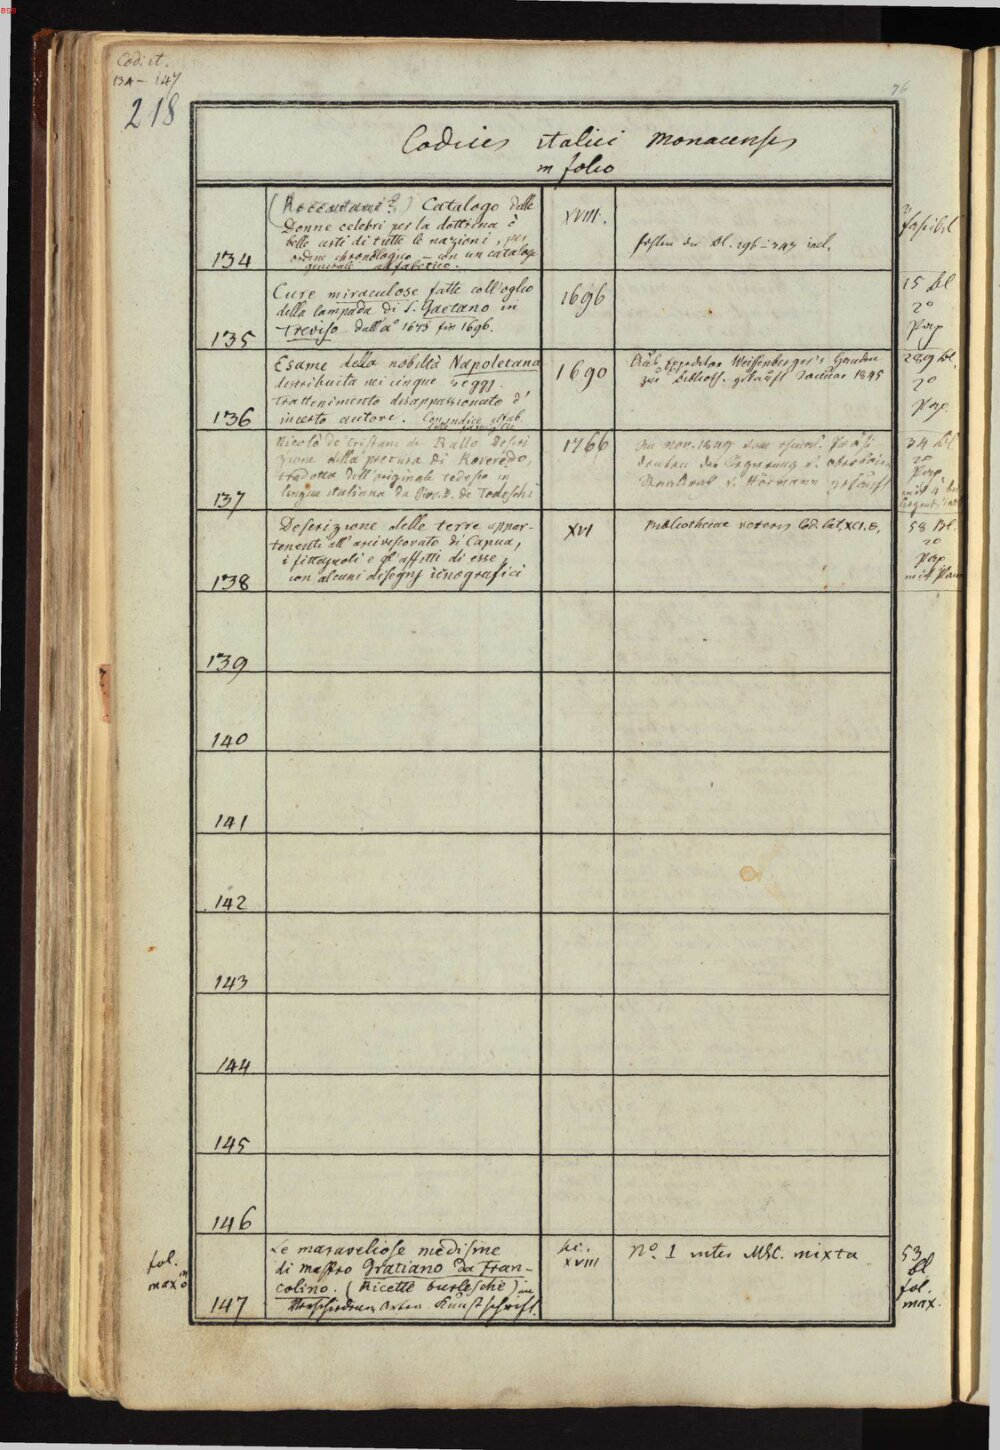 BSB
Cod. it.
134 – 147
218
76
Codices italici Monacenses
in folio
134
(Roccatani?) Catalogo delle
Donne celebri per la dottrina e
belle arti di tutte le nazioni, per
ordine chronologico – con un catalogo
generale alfabetico.
XVIII.
fehlen die Bl. 296–343 incl.
3
fascikel
135
Cure miraculose fatte coll'oglio
della lampada di S. Gaetano in
Treviso dall'aº 1673 fin 1696.
1696
15 Bl
2º
Pap
136
Esame della nobiltà Napoletana
distribuita nei cinque seggj.
trattenimento disappassionato d'
incerto autore. Con indice alfab.
delle famiglie
1690
Aus Expeditor Weissenberger's Handen
zur Biblioth. gekauft Januar 1845
289 Bl.
2º
Pap.
137
Nicolò de' Cristani de Rallo Descri
zione della pretura di Roveredo,
tradotta dell'originale tedesco in
lingua italiana da Giov. B. de Todeschi
1766
im Nov. 1849
Präsi-
denten der Regierung v.
v. Hörmann erkauft
34 Bl
2º
Pap
138
Descrizione delle terre appar-
tenenti all'arcivescovato di Capua,
i fittajuoli e gl'affitti di esse,
con alcuni disegnj icnografici
XVI
Bibliothecae veteris Cod. lat. XCI. E.
58 Bl.
2º
Pap
mit Plan
139
140
141
142
143
144
145
146
fol.
maxº
147
Le maraveliose medisine
di mastro Gratiano da Fran-
colino. (Ricette burlesche) in
verschiedenen Arten Kunstschrift.
sec.
XVIII
Nº 1 inter MSC. mixta
53
Bl
fol.
max.